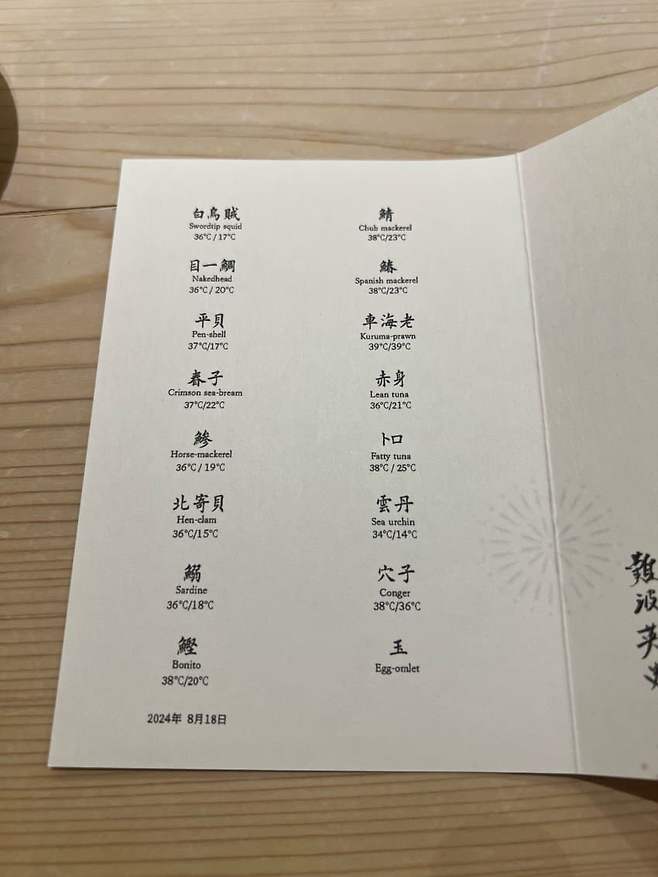 白烏賊
Swordtip squid
36℃ / 17℃
目一鯛
Nakedhead
36℃ / 20℃
平貝
Pen-shell
37℃/17℃
春子
Crimson sea-bream
37℃/22℃
鯵
Horse-mackerel
36℃ / 19℃
北寄貝
Hen-clam
36℃/15℃
鰯
Sardine
36℃/18℃
鰹
Bonito
38℃/20℃
2024年 8月18日
鯖
Chub mackerel
38℃/23℃
鰆
Spanish mackerel
38℃/23℃
車海老
Kuruma-prawn
39℃/39℃
赤身
Lean tuna
36℃/21℃
トロ
Fatty tuna
38℃ / 25℃
雲丹
Sea urchin
34℃/14℃
穴子
Conger
38℃/36℃
玉
Egg-omlet
難波英